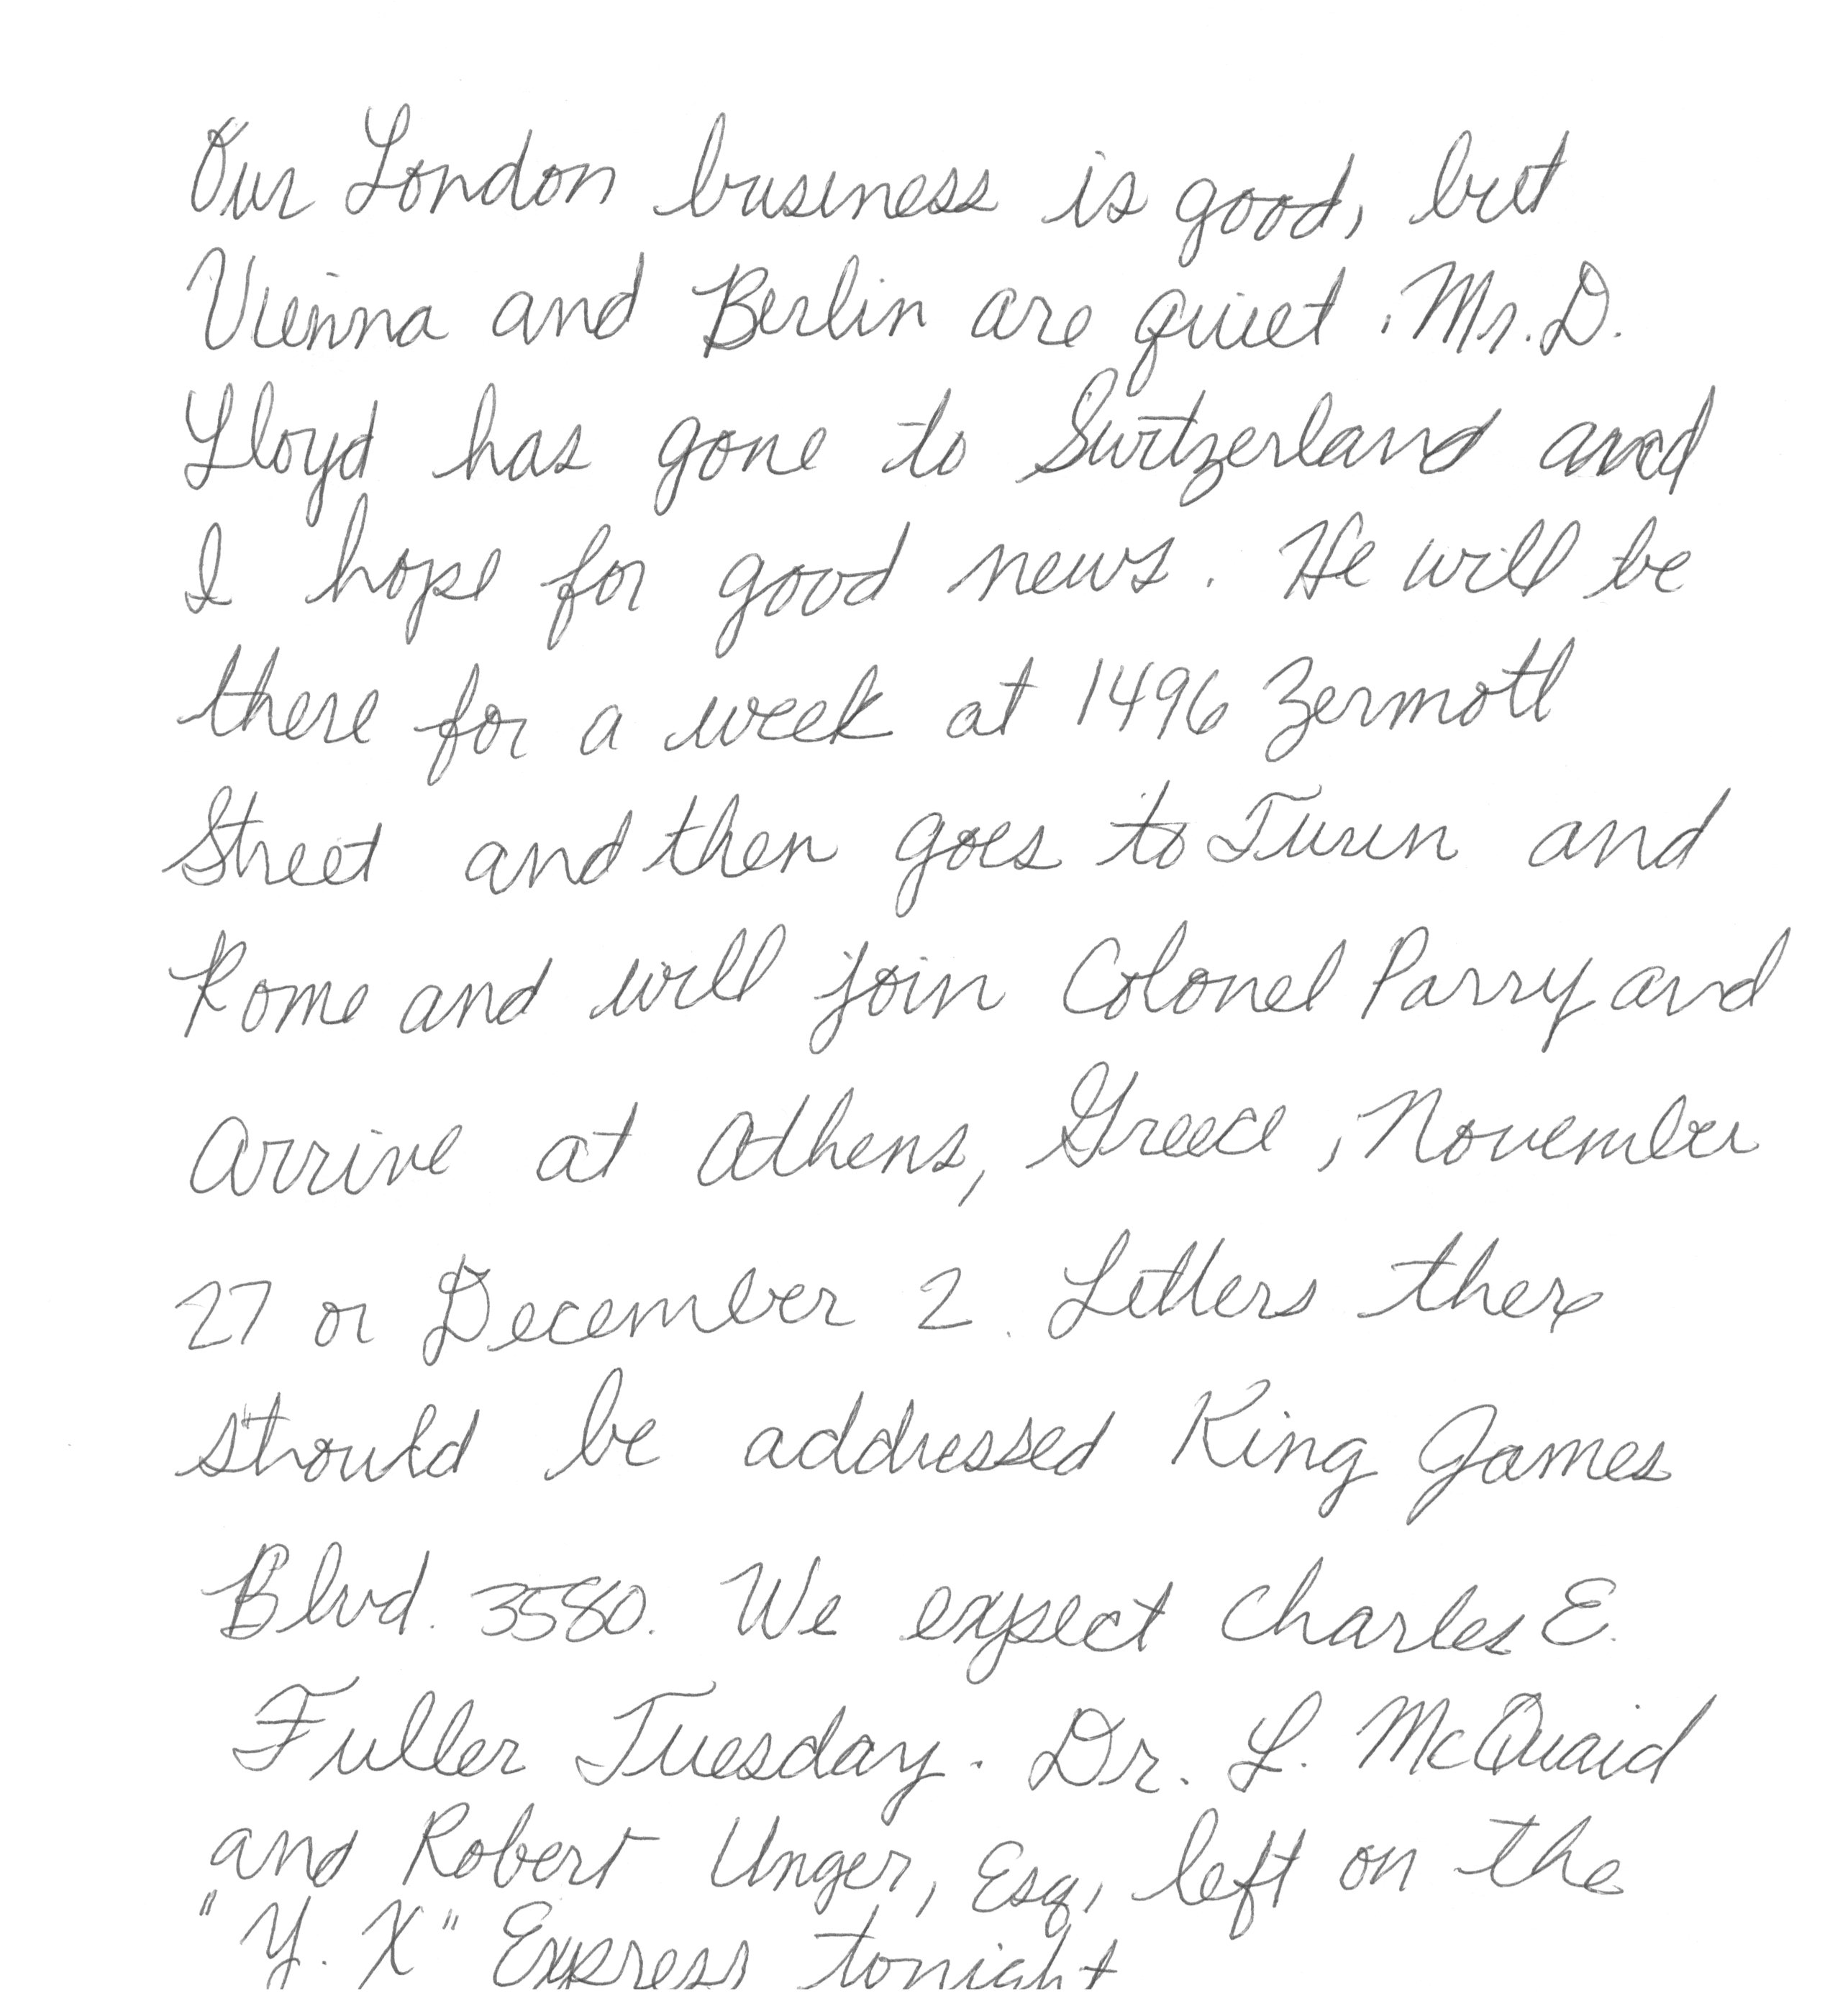 Our London business is good, but
Vienna and Berlin are quiet. Mr. D.
Lloyd has gone to Switzerland and
I hope for good news. He will be
there for a week at 1496 Zermott
Street and then goes to Turin and
Rome and will join Colonel Parry and
arrive at Athens, Greece, November
27 or December 2. Letters there
should be addressed King James
Blvd. 3580. We expect Charles E.
Fuller Tuesday. Dr. L. McQuaid
and Robert Unger, Esq, left on the
"Y. X" Express tonight